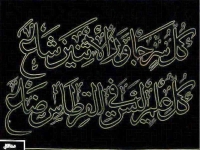 كل سر جاوز الاثنين شاع
كل علم ليس في القرطاس ضاع